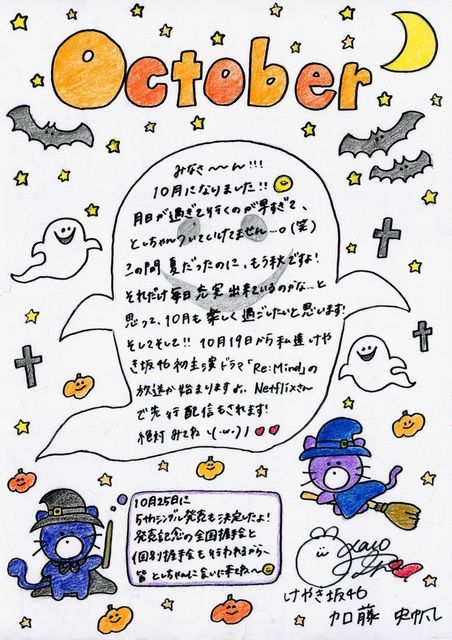 October
みなさ〜〜ん!!!
10月になりました!!
月日が過ぎて行くのが早すぎて、
としちゃんついていけてません…。(笑)
この間夏だったのに、もう秋ですよ!
それだけ毎日充実出来ているのかな…と
思って、10月も楽しく過ごしたいと思います!
そしてそして!! 10月19日から私達けや
き坂46初主演ドラマ「Re:Mind」の
放送が始まりますよ、Netflixさん
で先行配信もされます!
絶対みてね \(・ω・)/
10月25日に
5thシングル発売も決定したよ!
発売記念の全国握手会と
個別握手会も行われるから、
皆としちゃんに会いに来てね〜
けやき坂46
加藤 史帆